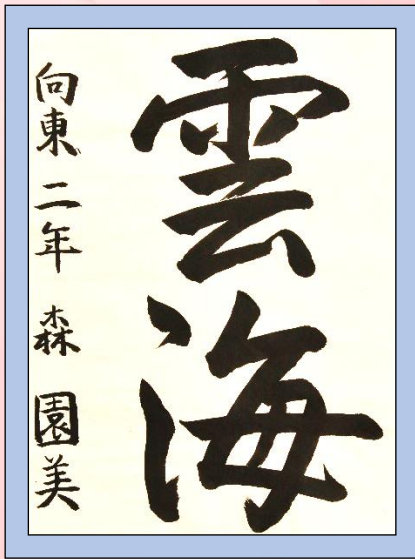 雲海
向東二年 森園美